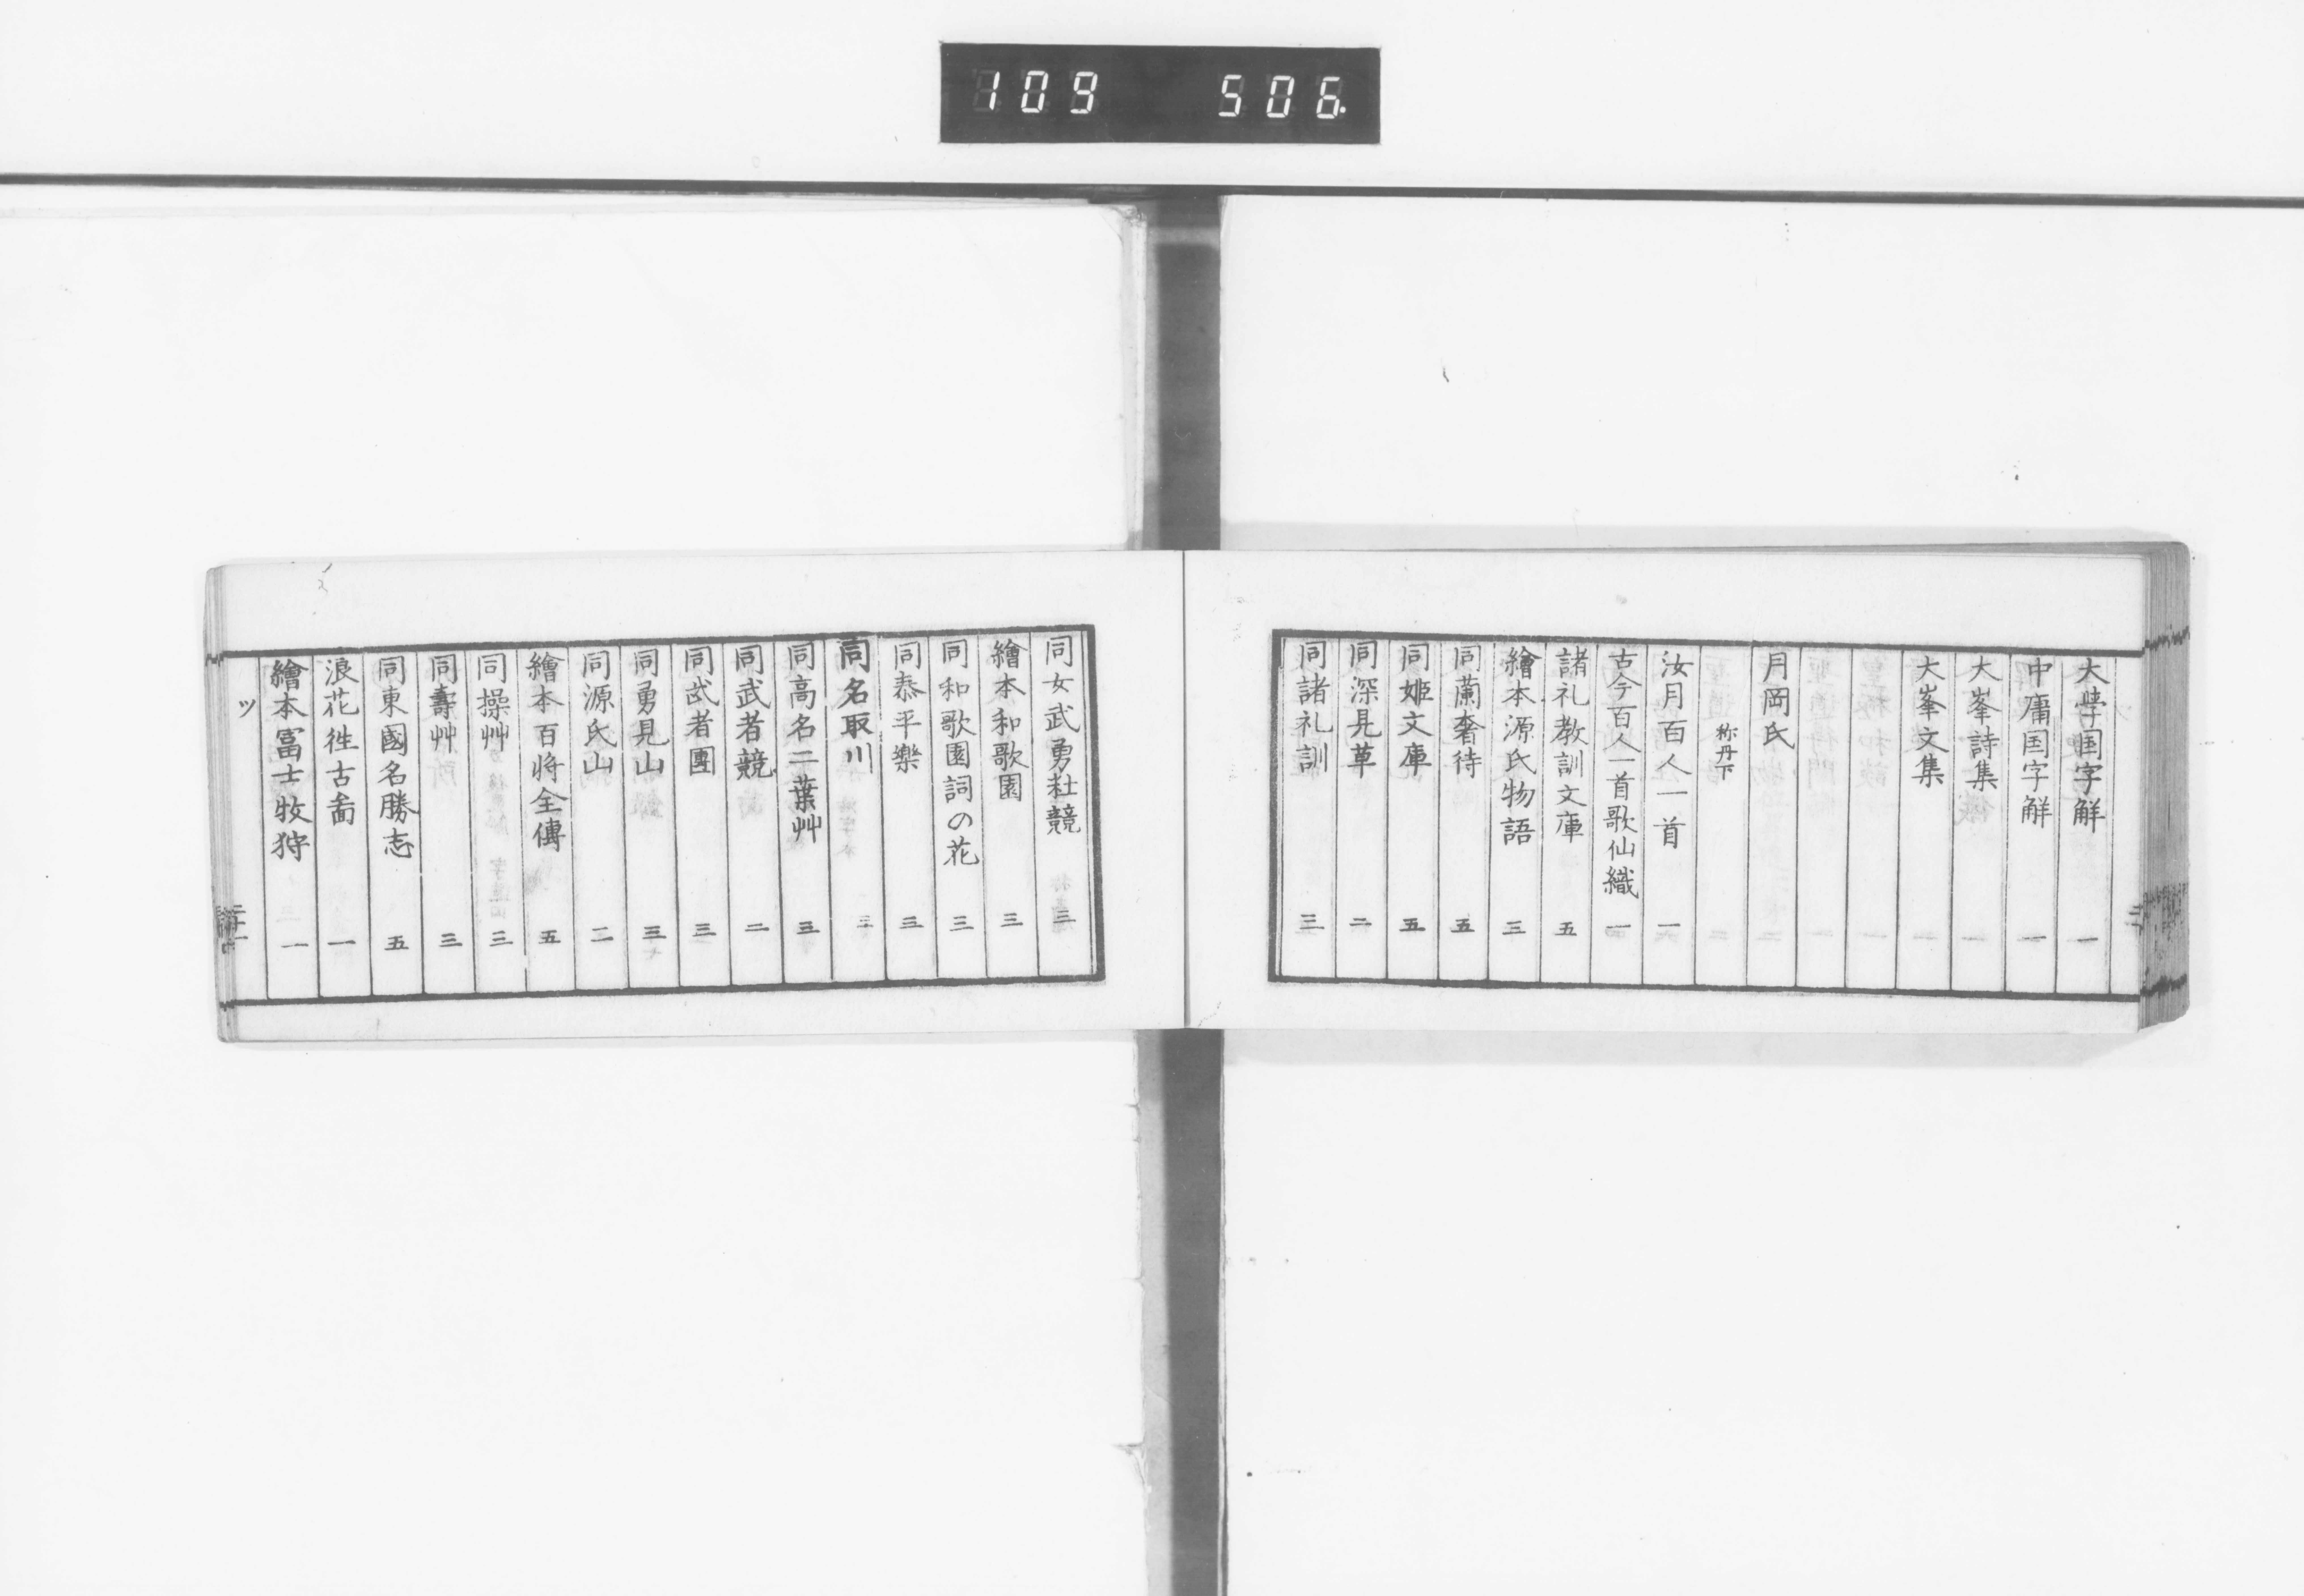 109 506.
大学国字解 一
中庸国字解 一
大峯詩集
大峯文集
月岡氏
称丹下
汝月百人一首 一
古今百人一首歌仙織 一
諸礼教訓文庫 五
繪本源氏物語 三
同蘭奢待 五
同姫文庫 五
同深見草 二
同諸礼訓 三
同女武勇粧競 三
繪本和歌園 三
同和歌園詞の花 三
同泰平樂 三
同名取川 三
同高名二葉艸 三
同武者競 二
同武者團 三
同勇見山 三
同源氏山 二
繪本百将全傳 五
同操艸 三
同壽艸 三
同東國名勝志 五
浪花徃古啚 一
繪本冨士牧狩 一
ツ